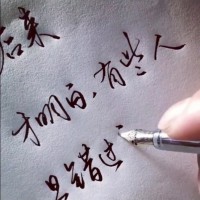 后来
才明白，有些人
是错过